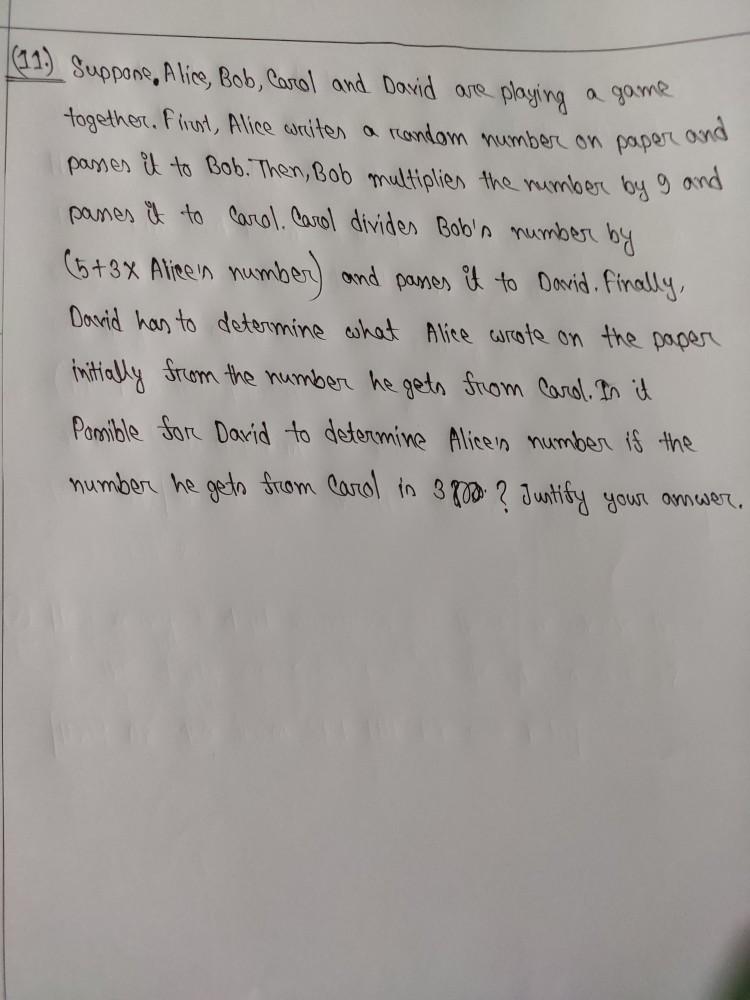 (11.) Suppose, Alice, Bob, Carol and David are playing a game
together. First, Alice writes a random number on paper and
passes it to Bob. Then, Bob multiplies the number by 9 and
passes it to Carol. Carol divides Bob's number by
(5+3x Alice's number) and passes it to David. Finally,
David has to determine what Alice wrote on the paper
initially from the number he gets from Carol. Is it
Possible for David to determine Alice's number if the
number he gets from Carol is 3 ? Justify your answer.